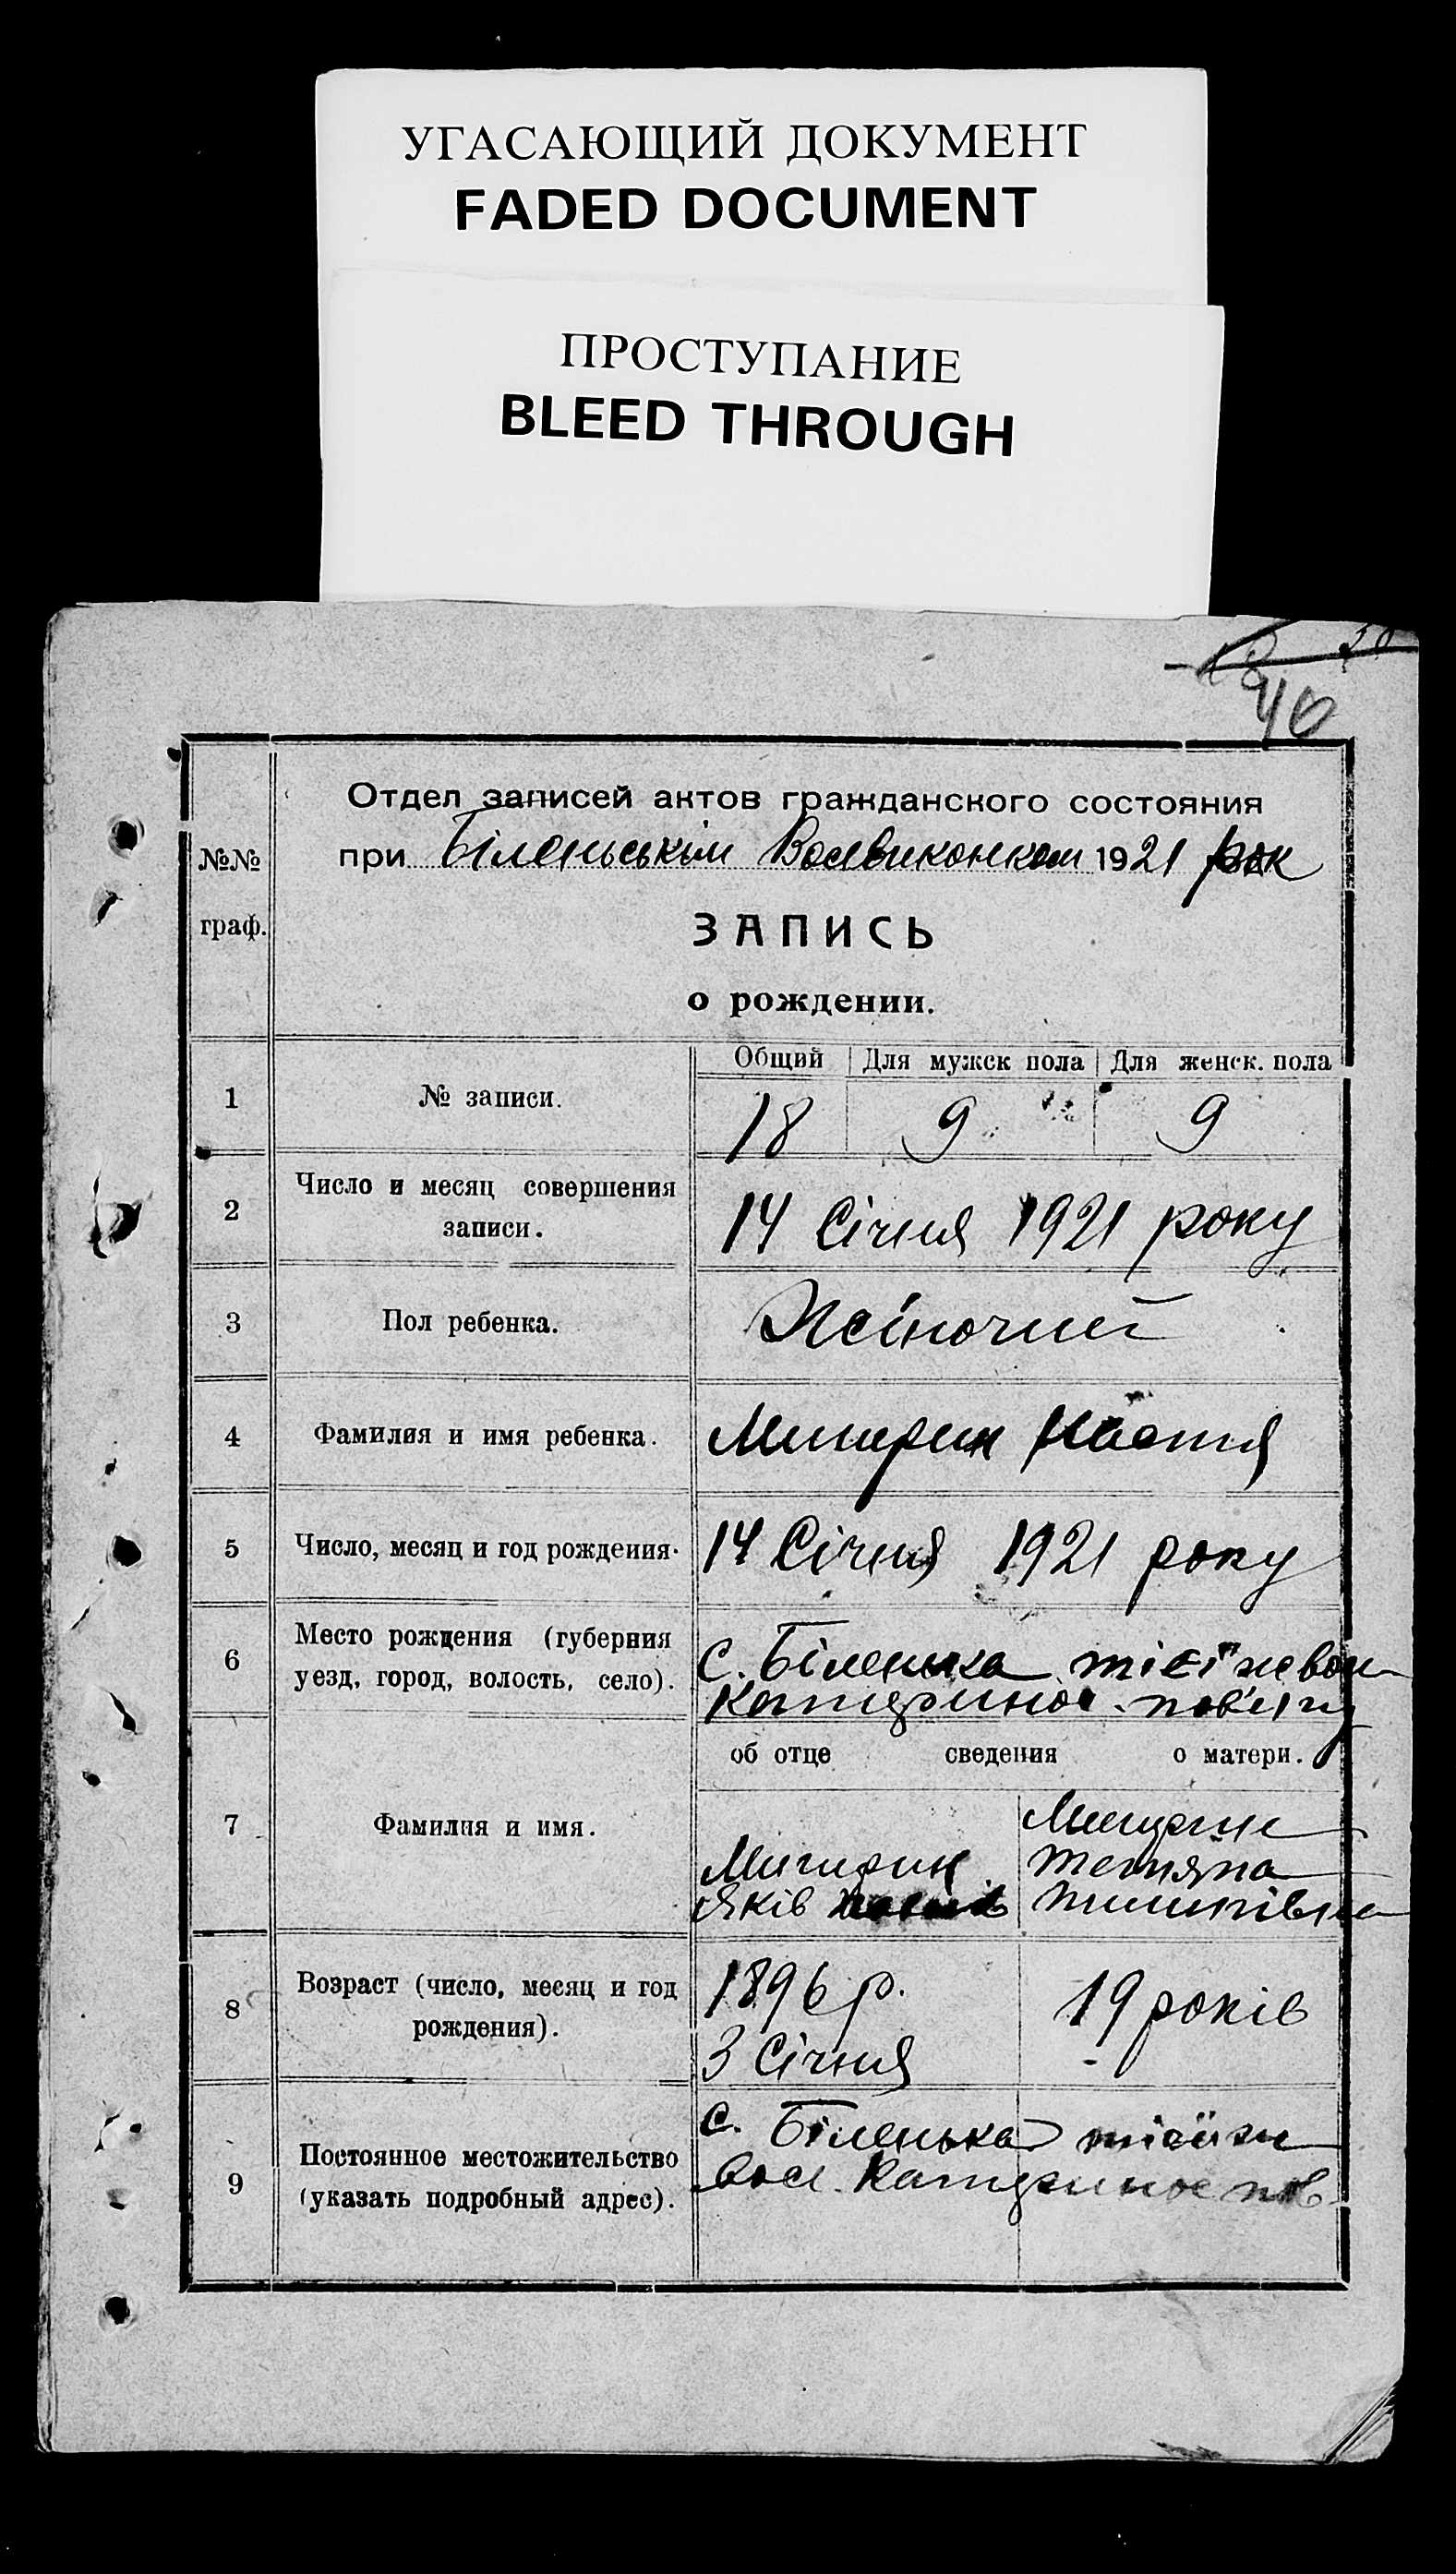 УГАСАЮЩИЙ ДОКУМЕНТ
FADED DOCUMENT
ПРОСТУПАНИЕ
BLEED THROUGH
40
№№
граф.
Отдел записей актов гражданского состояния
при Біленьськім Волвиконком 1921 рок
ЗАПИСЬ
о рождении.
Общий Для мужск пола Для женск. пола
1 № записи. 18 9 9
2 Число и месяц совершения
записи. 14 Січня 1921 року
3 Пол ребенка. Жіночий
4 Фамилия и имя ребенка. Мигирин Настя
5 Число, месяц и год рождения. 14 Січня 1921 року
6 Место рождения (губерния
уезд, город, волость, село).
с. Біленька тієї ж вол
Катеринос. пов'яту
об отце сведения о матери.
7 Фамилия и имя.
Мигирин
Яків
Мигирин
Тетяна
8 Возраст (число, месяц и год
рождения).
1896 р.
3 Січня
19 років
9 Постоянное местожительство
(указать подробный адрес).
с. Біленька тієї ж
вол. Катеринос пов.